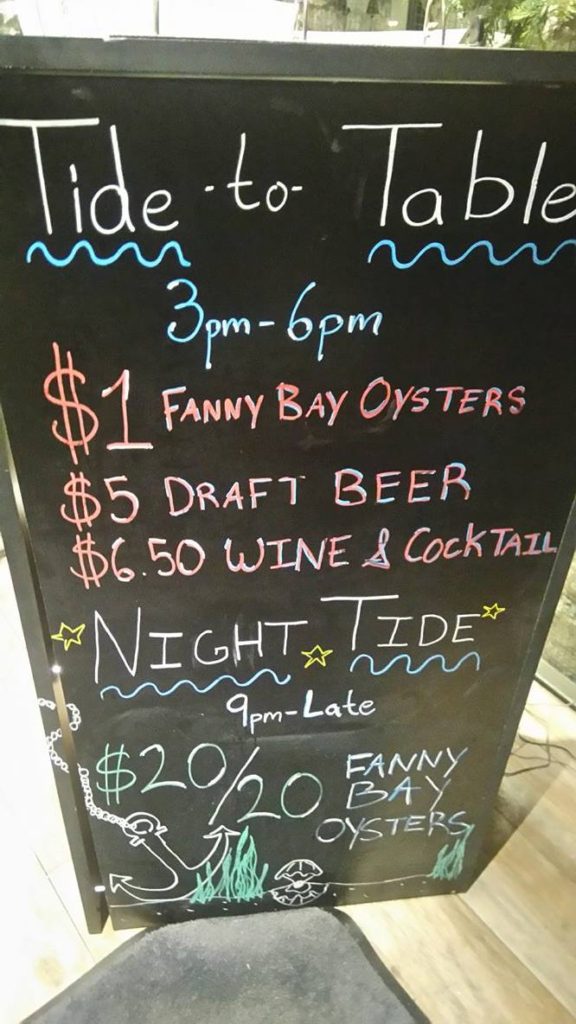 Tide -to- Table
3pm-6pm
$1 FANNY BAY OYSTERS
$5 DRAFT BEER
$6.50 WINE & COCKTAIL
NIGHT TIDE
9pm-Late
$20/20 FANNY
BAY
OYSTERS